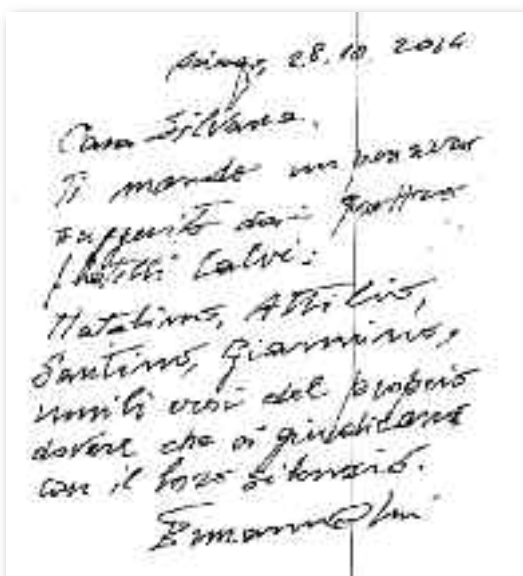 Asiago, 28.10.2014
Cara Silvana,
Ti mando un pensiero
suggerito dai quattro
fratelli Calvi:
Natalino, Attilio,
Santino, Giannino,
umili eroi del proprio
dovere che ci giudicano
con il loro silenzio.
Ermanno Olmi